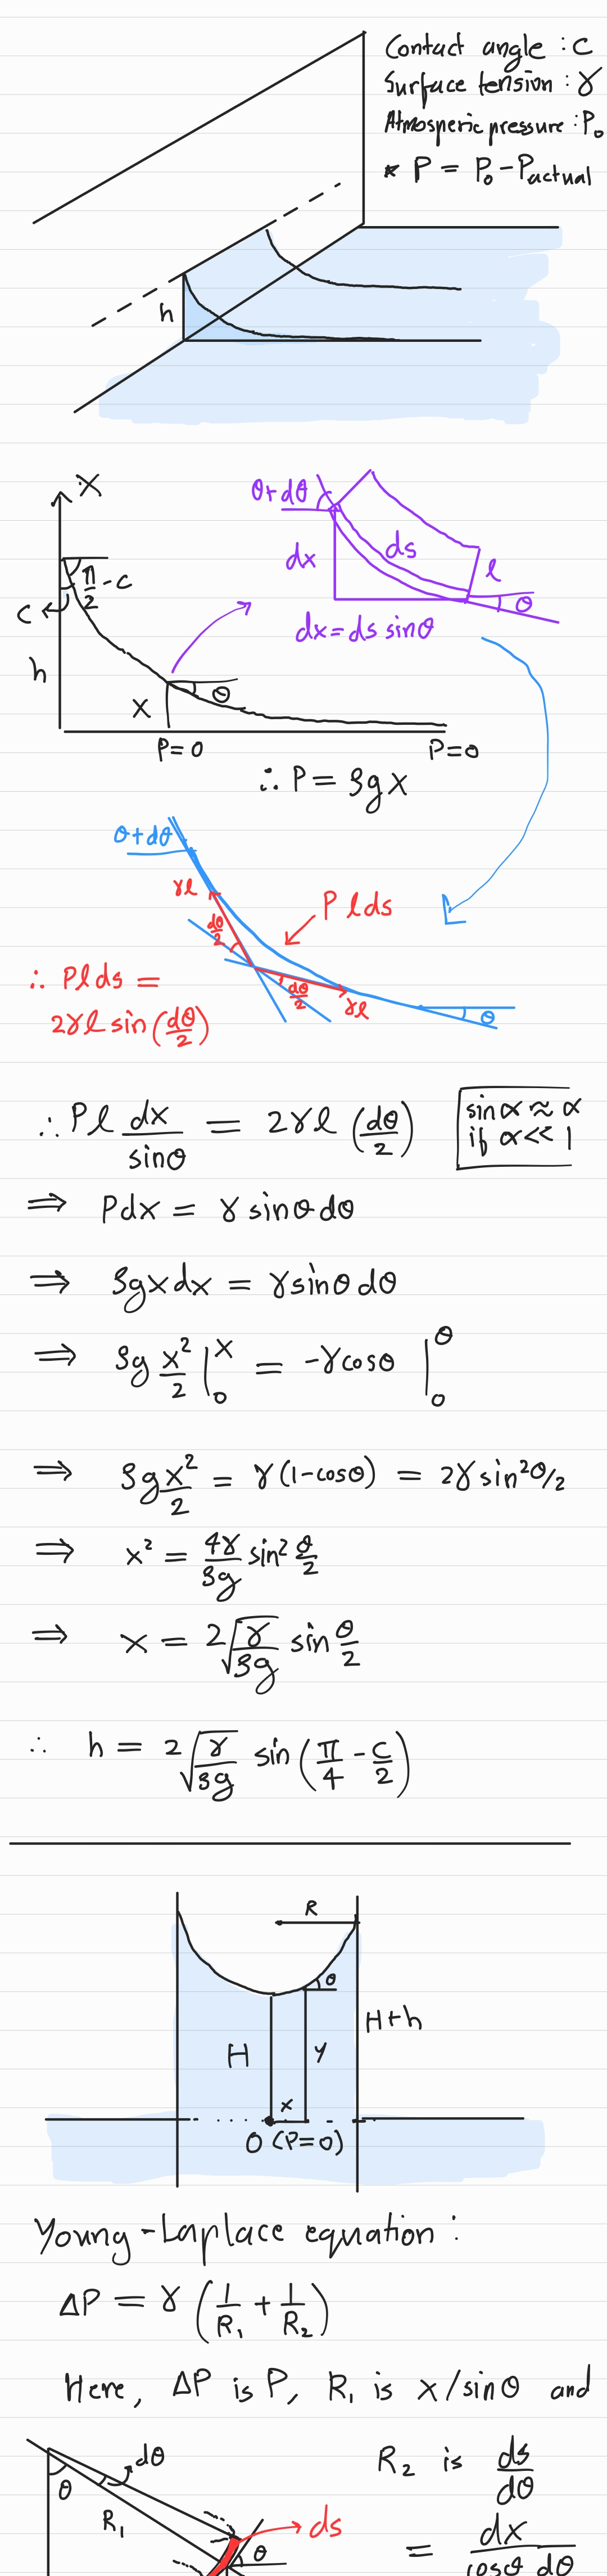 Contact angle : c
Surface tension : γ
Atmosperic pressure : P₀
* P = P₀ - P_actual
h
X
π/2 - c
c
h
x
θ
P=0
P=0
θ+dθ
dx
ds
l
θ
dx = ds sinθ
∴ P = ρgx
θ+dθ
γl
dθ/2
P l ds
dθ/2
γl
θ
∴ Plds =
2γl sin(dθ/2)
∴ Pl dx/sinθ = 2γl (dθ/2)
sinα ≈ α
if α << 1
⇒ Pdx = γ sinθ dθ
⇒ ρgxdx = γsinθ dθ
⇒ ρg x²/2 |₀ˣ = -γcosθ |₀^θ
⇒ ρgx²/2 = γ(1-cosθ) = 2γ sin²θ/2
⇒ x² = 4γ/ρg sin² θ/2
⇒ x = 2√(γ/ρg) sin θ/2
∴ h = 2√(γ/ρg) sin(π/4 - c/2)
R
θ
H
y
H+h
x
O (P=0)
Young-Laplace equation :
ΔP = γ (1/R₁ + 1/R₂)
Here, ΔP is P, R₁ is x/sinθ and
dθ
θ
R₁
ds
θ
R₂ is ds/dθ
= dx/cosθ dθ